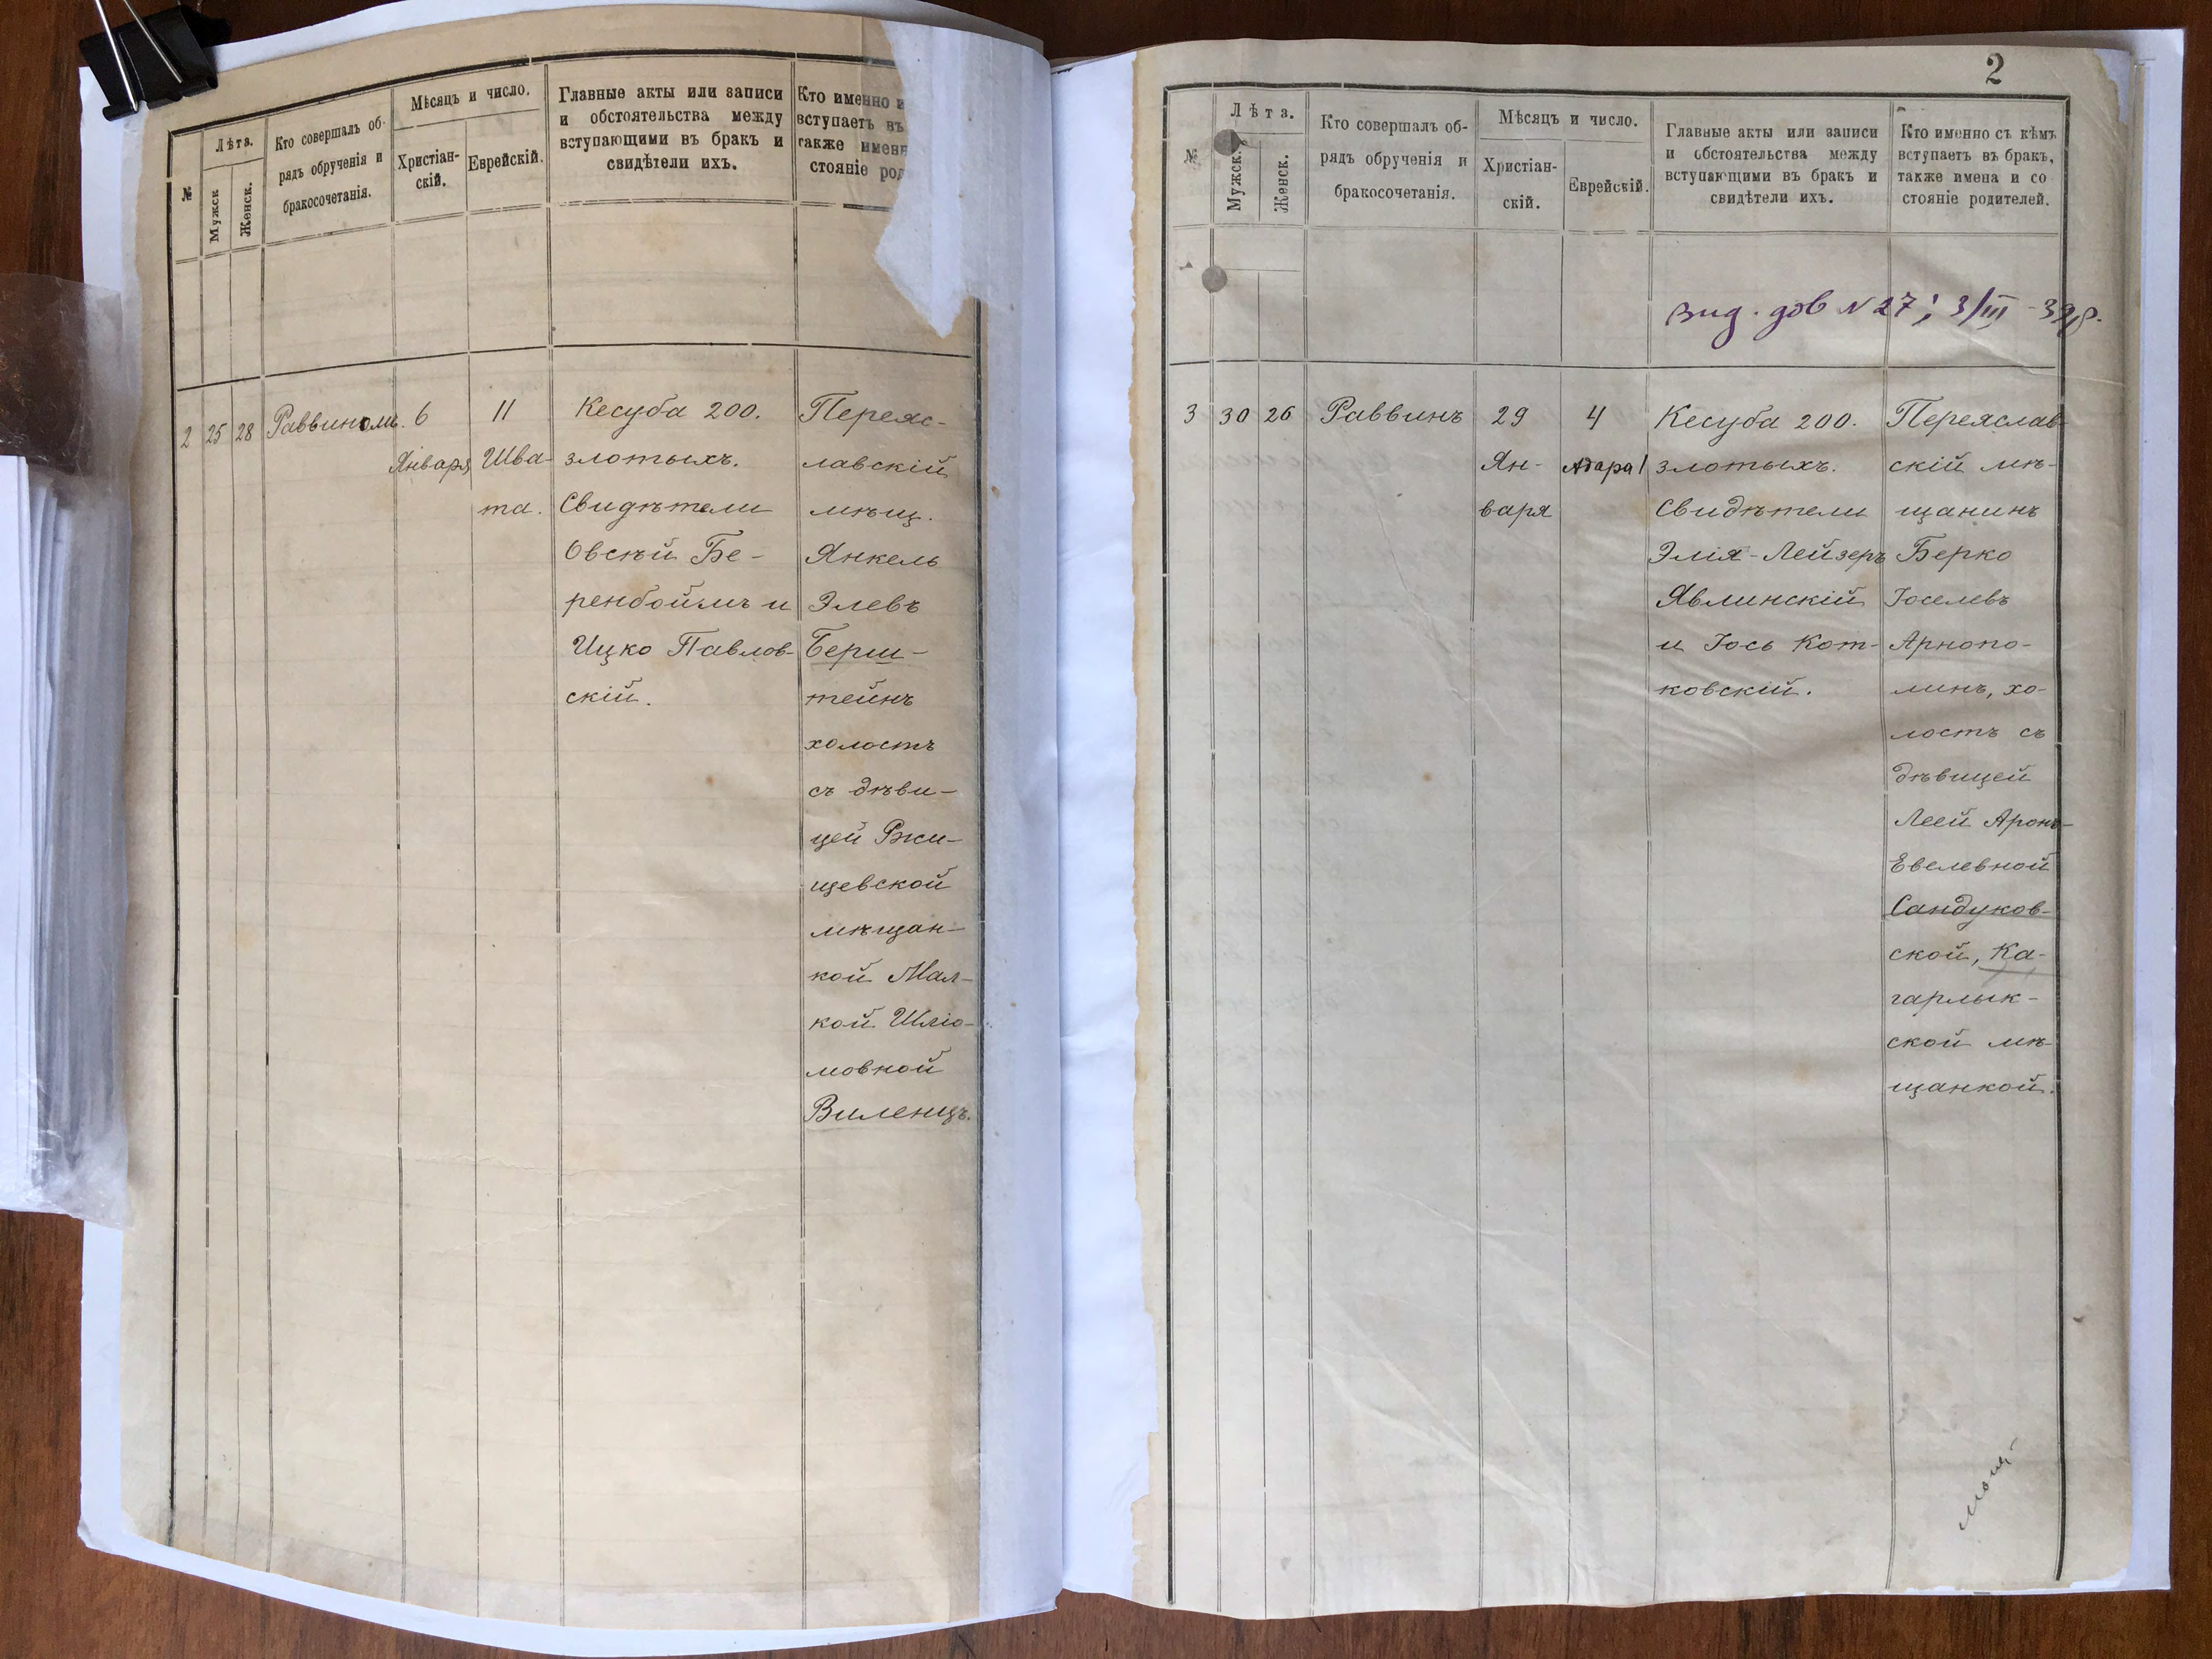 №
Лѣта.
Мужск
Женск.
Кто совершалъ об-
рядъ обрученія и
бракосочетанія.
Мѣсяцъ и число.
Христіан-
скій.
Еврейскій.
Главные акты или записи
и обстоятельства между
вступающими въ бракъ и
свидѣтели ихъ.
Кто именно
вступаетъ въ
также имен
стояніе род
2
25
28
Раввиномъ.
6
Января
11
Шва-
та.
Кесуба 200.
злотыхъ.
Свидѣтели
Овсѣй Бе-
ренбоймъ и
Ицко Павлов-
скій.
Переяс-
лавскій
мѣщ.
Янкель
Элевъ
Берш-
тейнъ
холостъ
съ дѣви-
цей Ржи-
щевской
мѣщан-
кой Мал-
кой Шліо-
мовной
Виленцъ.
2
№
Лѣта.
Мужск.
Женск.
Кто совершалъ об-
рядъ обрученія и
бракосочетанія.
Мѣсяцъ и число.
Христіан-
скій.
Еврейскій.
Главные акты или записи
и обстоятельства между
вступающими въ бракъ и
свидѣтели ихъ.
Кто именно съ кѣмъ
вступаетъ въ бракъ,
также имена и со
стояніе родителей.
вид. дов N 27; 3/III - 39р.
3
30
26
Раввинъ
29
Ян-
варя
4
Адара I
Кесуба 200.
злотыхъ.
Свидѣтели
Элія-Лейзеръ
Явлинскій
и Іось Кот-
ковскій.
Переяслав-
скій мѣ-
щанинъ
Берко
Іоселевъ
Арнопо-
линъ, хо-
лостъ съ
дѣвицей
Леей Аронъ-
Евелевной
Сандуков-
ской, Ка-
гарлык-
ской мѣ-
щанкой.